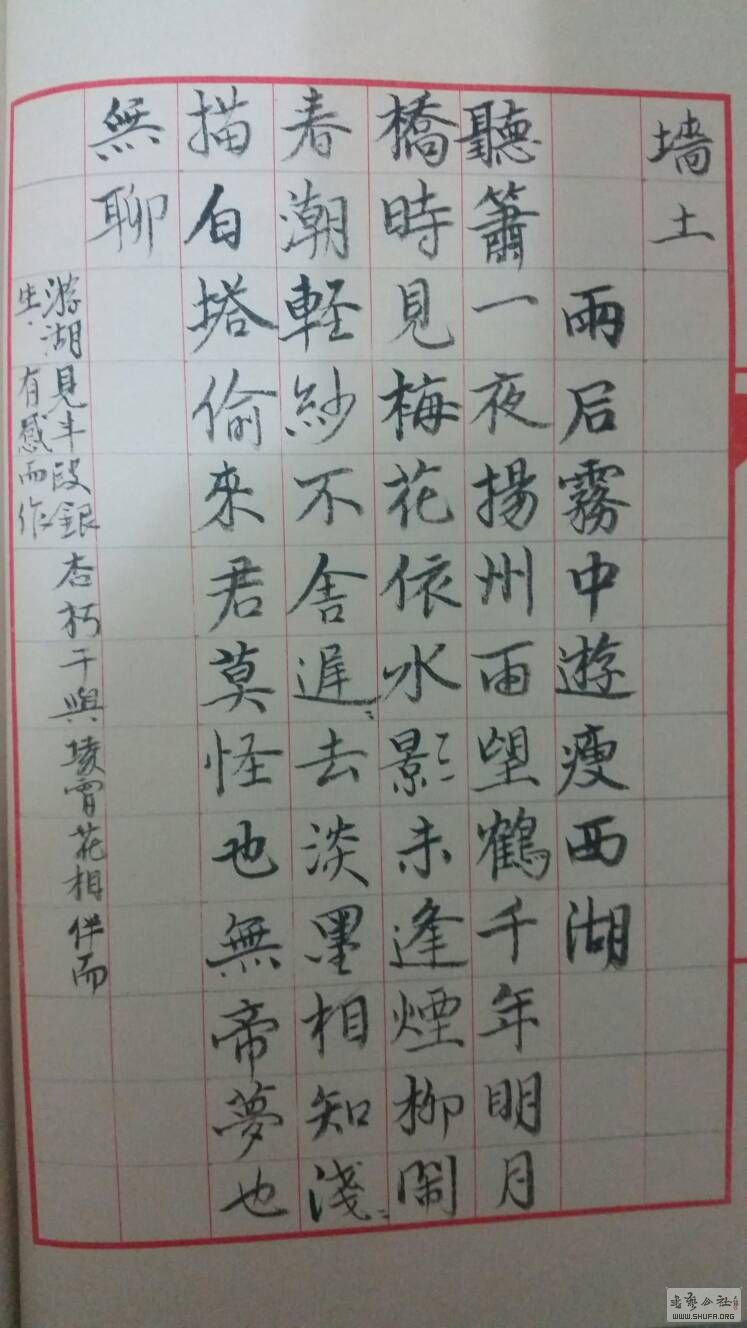 墙土
雨后霧中遊瘦西湖
聽簫一夜揚州雨望鶴千年明月
橋時見梅花依水影未逢煙柳鬧
春潮軽紗不舍遲〻去淡墨相知淺〻
描白塔偷來君莫怪也無帝夢也
無聊
游湖見半段銀杏朽干與凌霄花相伴而
生、有感而作
书艺公社
WWW.SHUFA.ORG